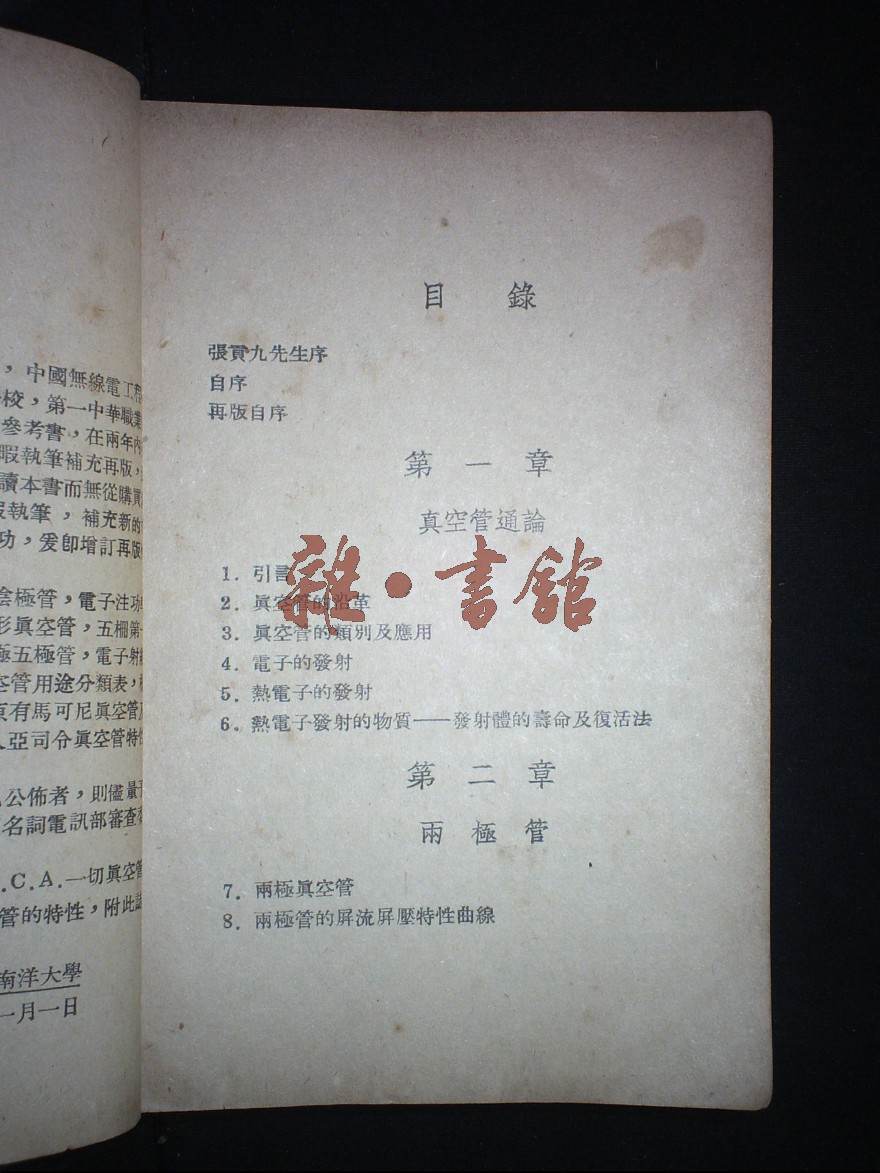 ，中國無線電工程
校，第一中華職業
參考書，在兩年內
暇執筆補充再版，
讀本書而無從購買
假執筆，補充新的
功，爰卽增訂再版
陰極管，電子注功
形眞空管，五柵第
極五極管，電子射
空管用途分類表，
頁有馬可尼眞空管
人亞司令眞空管特性
公佈者，則儘量
名詞電訊部審查
.C.A.一切眞空管
管的特性，附此誌
南洋大學
一月一日
目錄
張貢九先生序
自序
再版自序
第一章
真空管通論
1. 引言
2. 眞空管的沿革
3. 眞空管的類別及應用
4. 電子的發射
5. 熱電子的發射
6. 熱電子發射的物質——發射體的壽命及復活法
第二章
兩極管
7. 兩極眞空管
8. 兩極管的屏流屏壓特性曲線
雜·書館